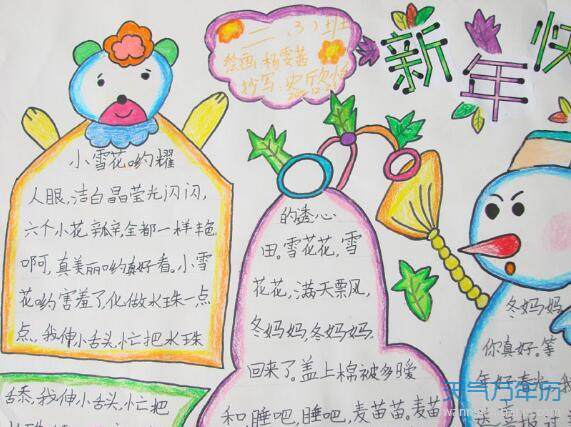 二、(3)班
绘画:杨雯茜
抄写:史欣怡
新年快
小雪花哟耀
人眼,洁白晶莹光闪闪,
六个小花瓣,全都一样艳
啊呵,真美丽哟真好看。小雪
花哟害羞了,化做水珠一点
点、我伸小舌头,忙把水珠
舌忝,我伸小舌头,忙把
的透心
田。雪花花,雪
花花,满天票风,
冬妈妈,冬妈妈,
回来了。盖上棉被多暖
和,睡吧,睡吧,麦苗苗。麦苗
冬妈妈
你真好。等
天气万年历